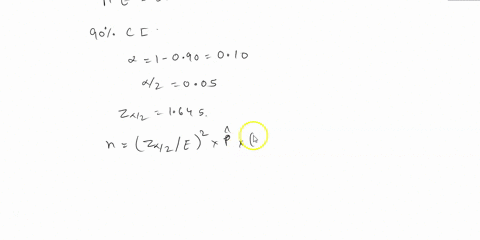 90% CI:
α = 1 - 0.90 = 0.10
α/2 = 0.05
Zα/2 = 1.645.
n = (Zα/2 / E)² × p̂ × (